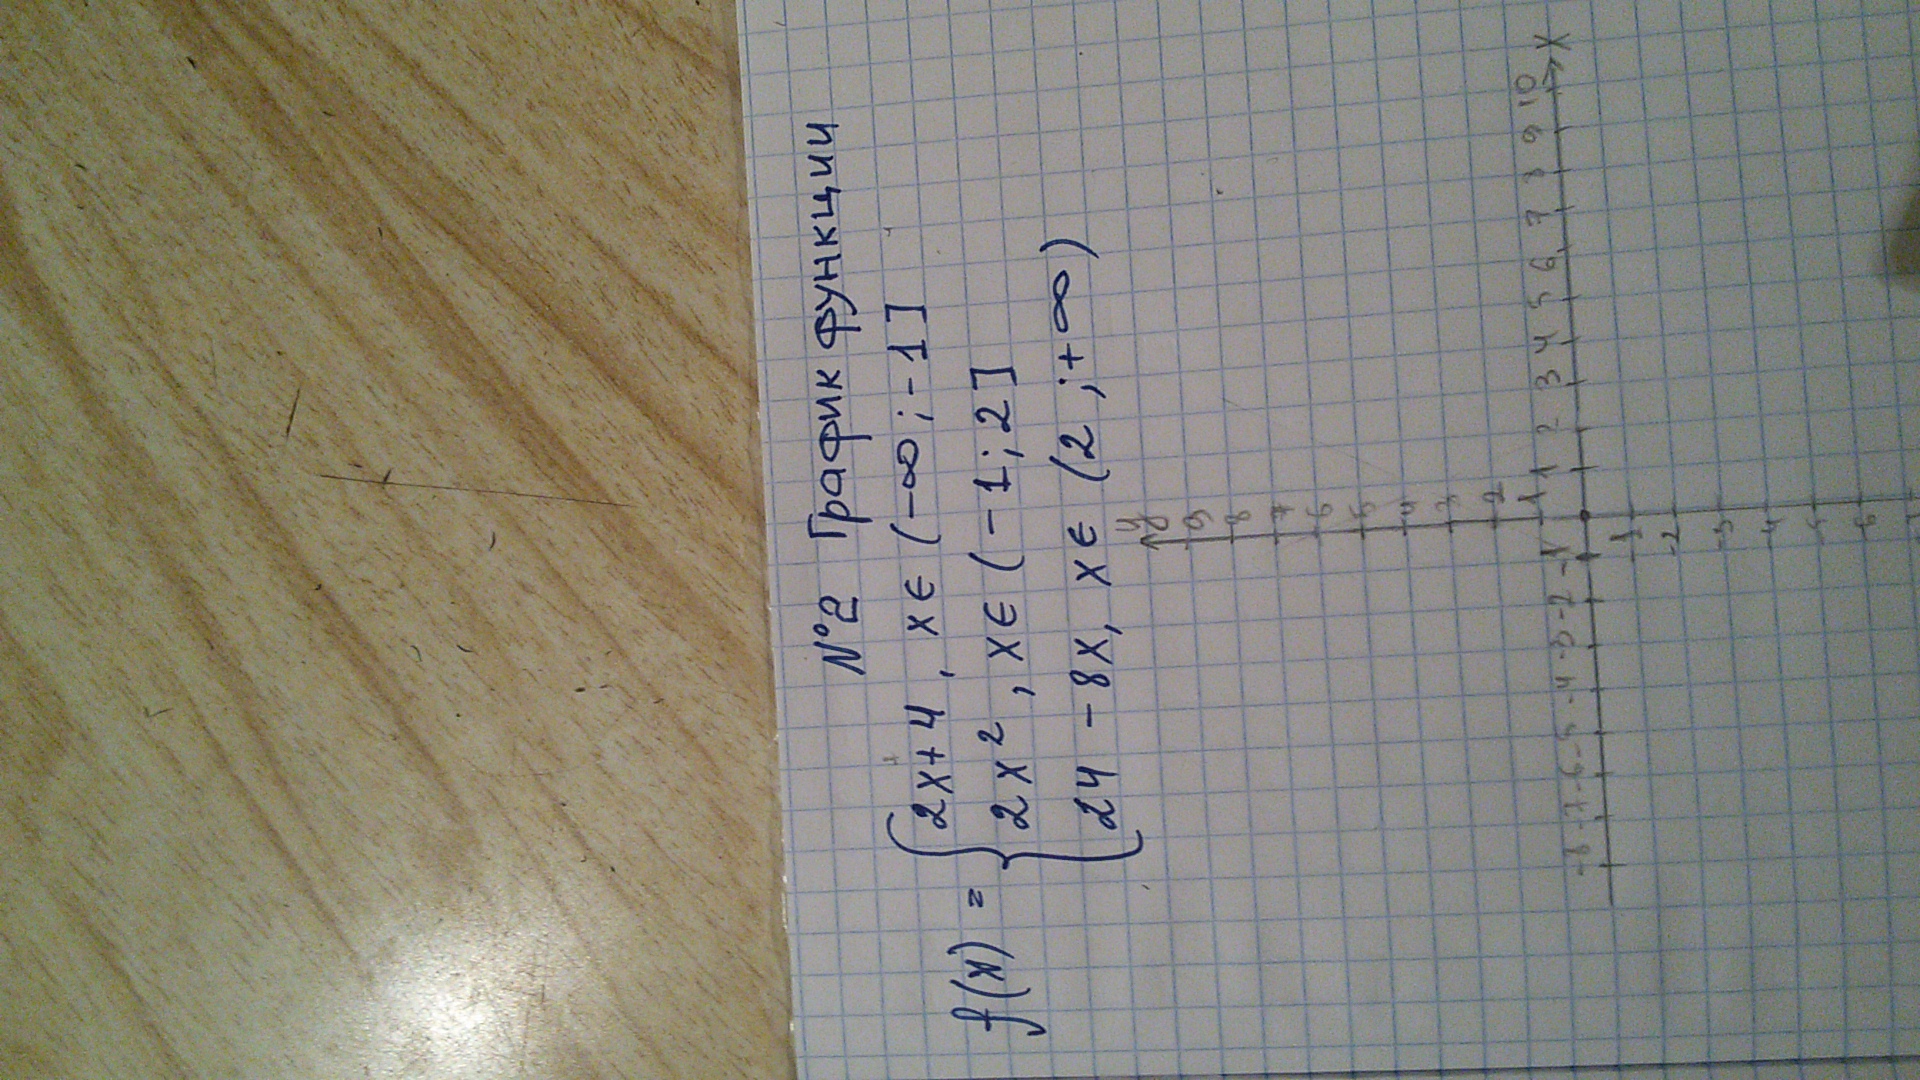 №2 График функции
f(x) = { 2x+4, x∈(-∞;-1]
2x², x∈(-1;2]
24-8x, x∈(2;+∞)
y
9
8
7
6
5
4
3
2
1
-8 -7 -6 -5 -4 -3 -2 -1 1 2 3 4 5 6 7 8 9 10 x
-1
-2
-3
-4
-5
-6